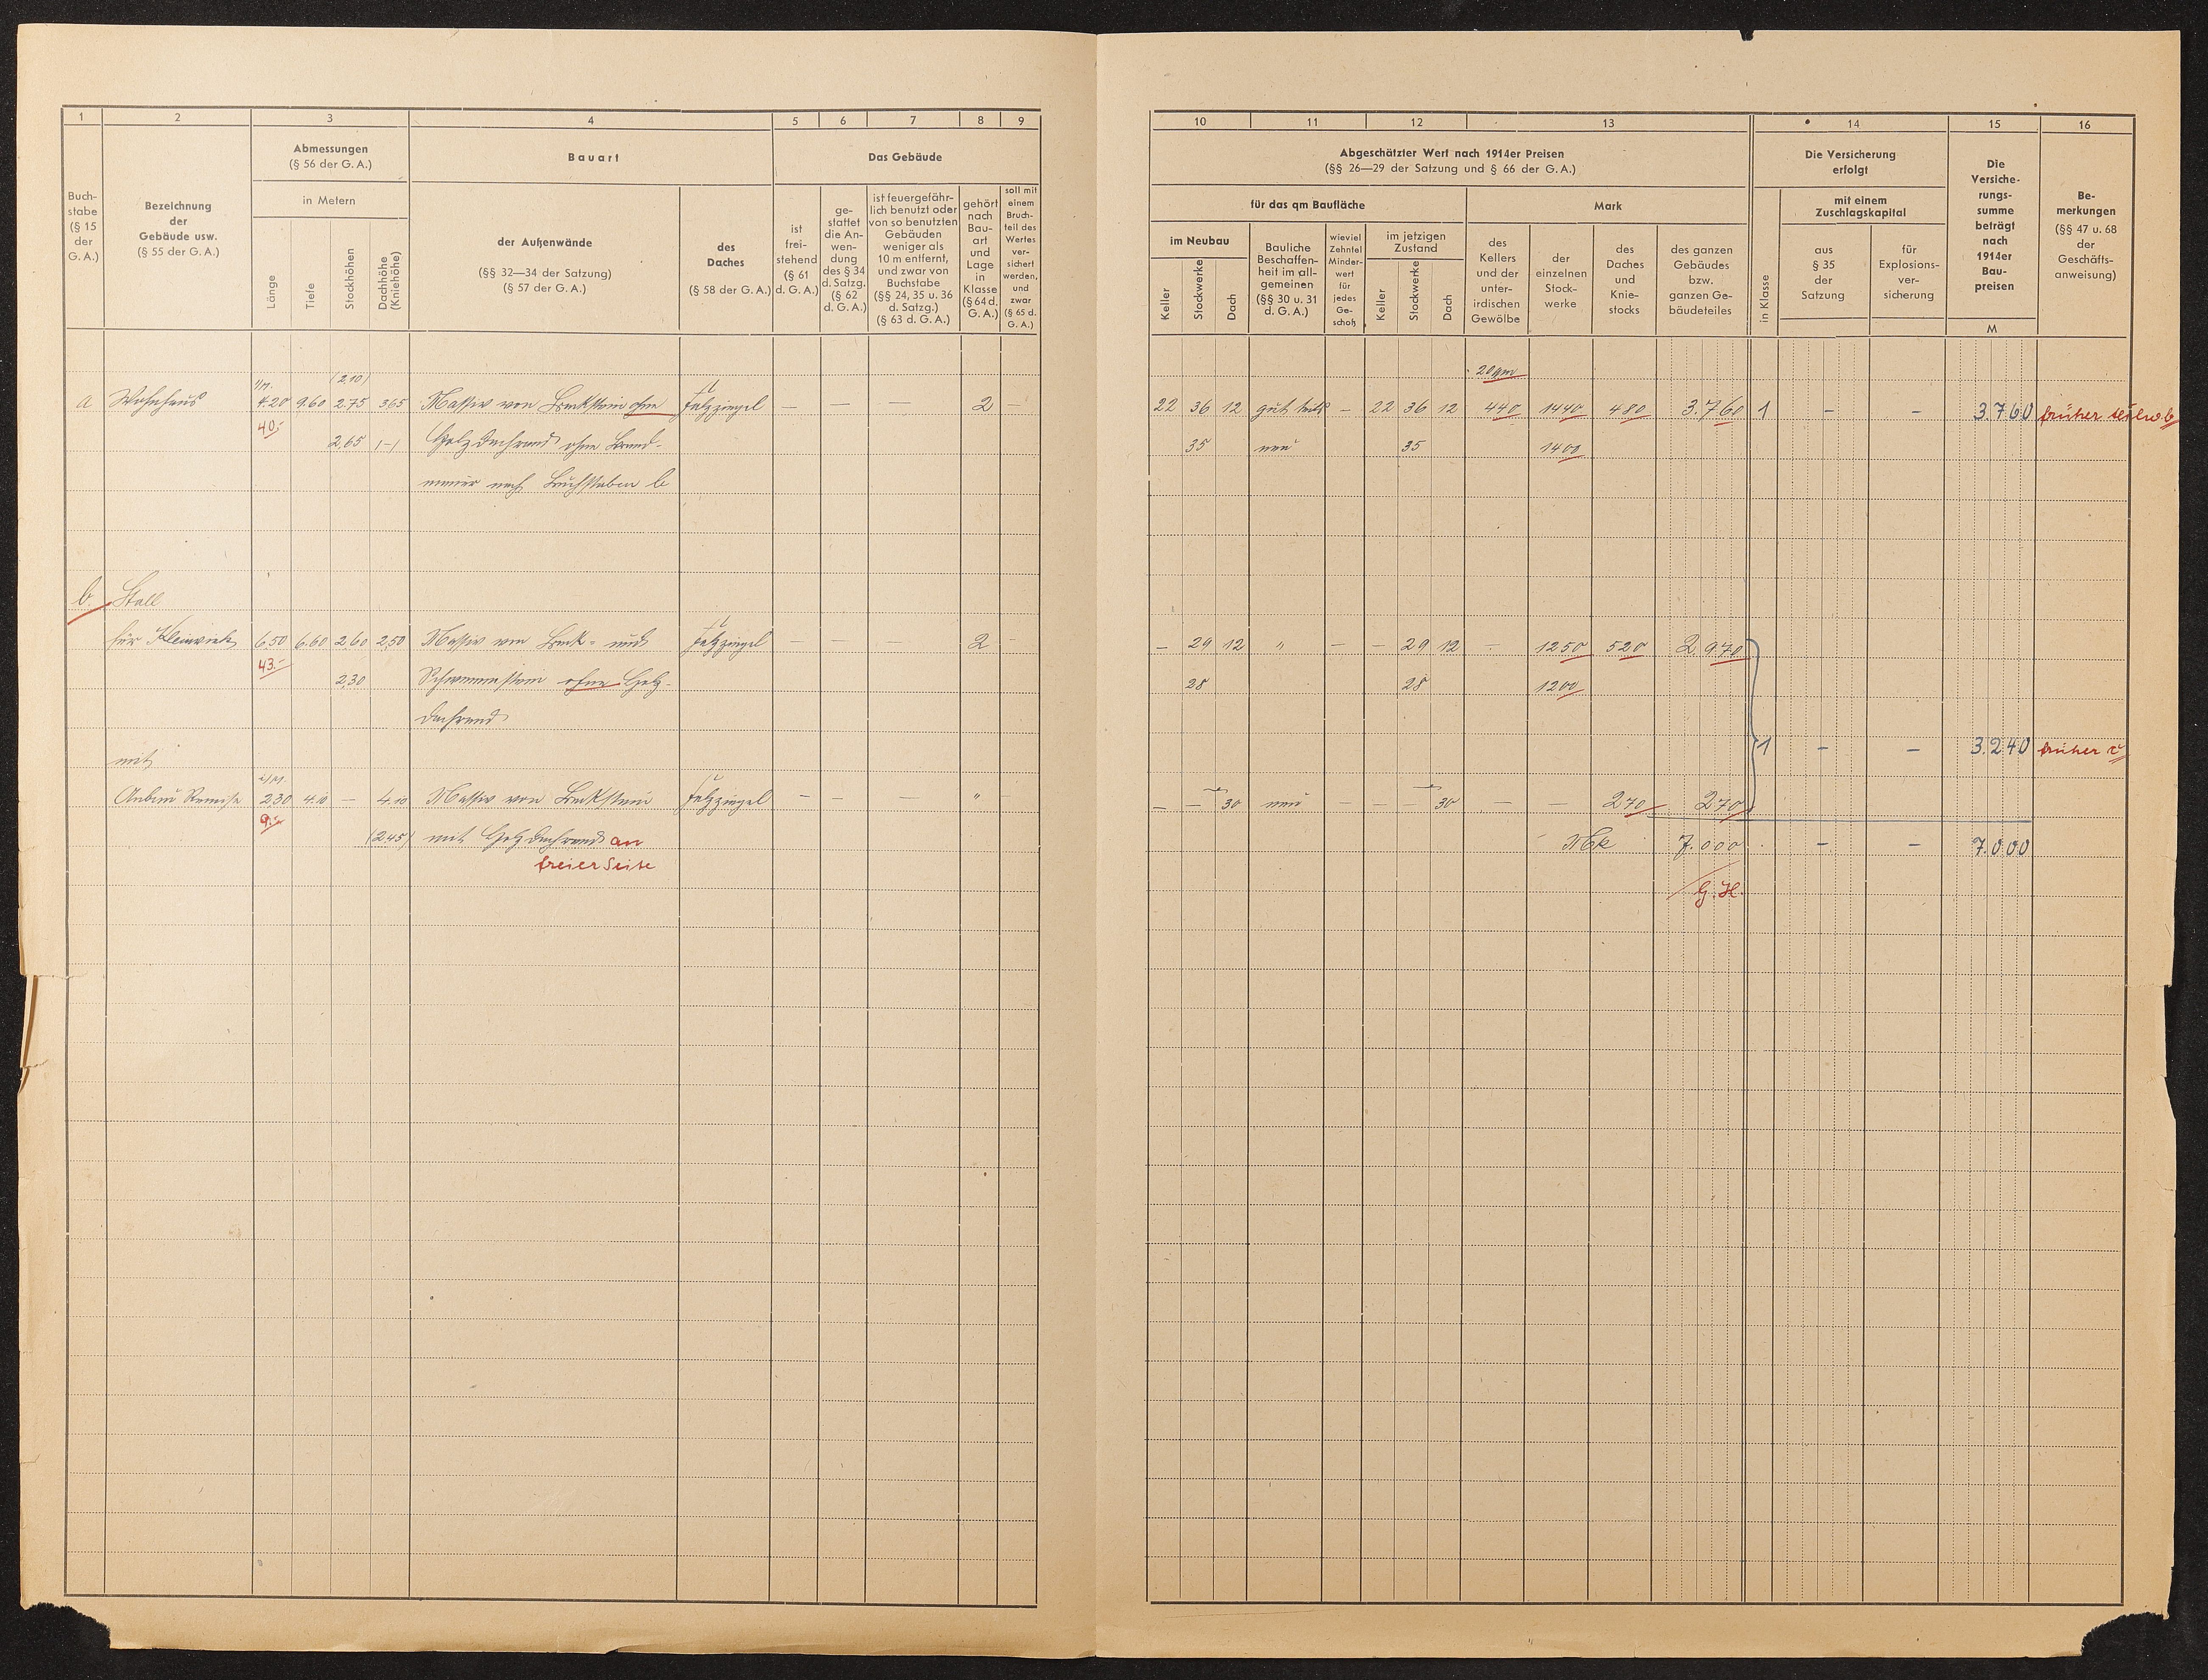 1 2 3 4 5 6 7 8 9
Buch-
stabe
(§ 15
der
G. A.)
Bezeichnung
der
Gebäude usw.
(§ 55 der G. A.)
Abmessungen
(§ 56 der G. A.)
in Metern
Länge
Tiefe
Stockhöhen
Dachhöhe
(Kniehöhe)
Bauart
der Außenwände
(§§ 32—34 der Satzung)
(§ 57 der G. A.)
des
Daches
(§ 58 der G. A.)
Das Gebäude
ist
frei-
stehend
(§ 61
d. G. A.)
ge-
stattet
die An-
wen-
dung
des § 34
d. Satzg.
(§ 62
d. G. A.)
ist feuergefähr-
lich benutzt oder
von so benutzten
Gebäuden
weniger als
10 m entfernt,
und zwar von
Buchstabe
(§§ 24, 35 u. 36
d. Satzg.)
(§ 63 d. G. A.)
gehört
nach
Bau-
art
und
Lage
in
Klasse
(§ 64 d.
G. A.)
soll mit
einem
Bruch-
teil des
Wertes
ver-
sichert
werden,
und
zwar
(§ 65 d.
G. A.)
(2,10)
a Wohnhaus 4.20 9.60 2.75 365 Massiv von Backstein ohne Falzziegel — — — 2 —
40.-
2,65 1-1 Holzdachrand ohne Brand-
mauer nach Buchstaben b
b Stall
für Kleinvieh 6,50 6.60 2,60 2,50 Massiv von Back- und Falzziegel — — — 2 —
43.-
2,30 Schwemmstein ohne Holz-
dachrand
mit
Anbau Remise 2,30 4.10 — 4.10 Massiv von Backstein Falzziegel — — — " —
9.-
(2,45) mit Holzdachrand an
freier Seite
10 11 12 13 14 15 16
Abgeschätzter Wert nach 1914er Preisen
(§§ 26—29 der Satzung und § 66 der G. A.)
für das qm Baufläche
im Neubau
Keller
Stockwerke
Dach
Bauliche
Beschaffen-
heit im all-
gemeinen
(§§ 30 u. 31
d. G. A.)
wieviel
Zehntel
Minder-
wert
für
jedes
Ge-
schoß
im jetzigen
Zustand
Keller
Stockwerke
Dach
Mark
des
Kellers
und der
unter-
irdischen
Gewölbe
der
einzelnen
Stock-
werke
des
Daches
und
Knie-
stocks
des ganzen
Gebäudes
bzw.
ganzen Ge-
bäudeteiles
Die Versicherung
erfolgt
in Klasse
mit einem
Zuschlagskapital
aus
§ 35
der
Satzung
für
Explosions-
ver-
sicherung
Die
Versiche-
rungs-
summe
beträgt
nach
1914er
Bau-
preisen
M
Be-
merkungen
(§§ 47 u. 68
der
Geschäfts-
anweisung)
20 qm
22 36 12 gut teils — 22 36 12 440 1440 480 3.760 1 — — 3.760 früher teilw. b
35 neu 35 1400
— 29 12 " — — 29 12 — 1250 520 2 970
28 28 1200
1 — — 3.240 früher c
— — 30 neu — — — 30 — — 270 270
Mk 7.000 — — 7.000
G. H.